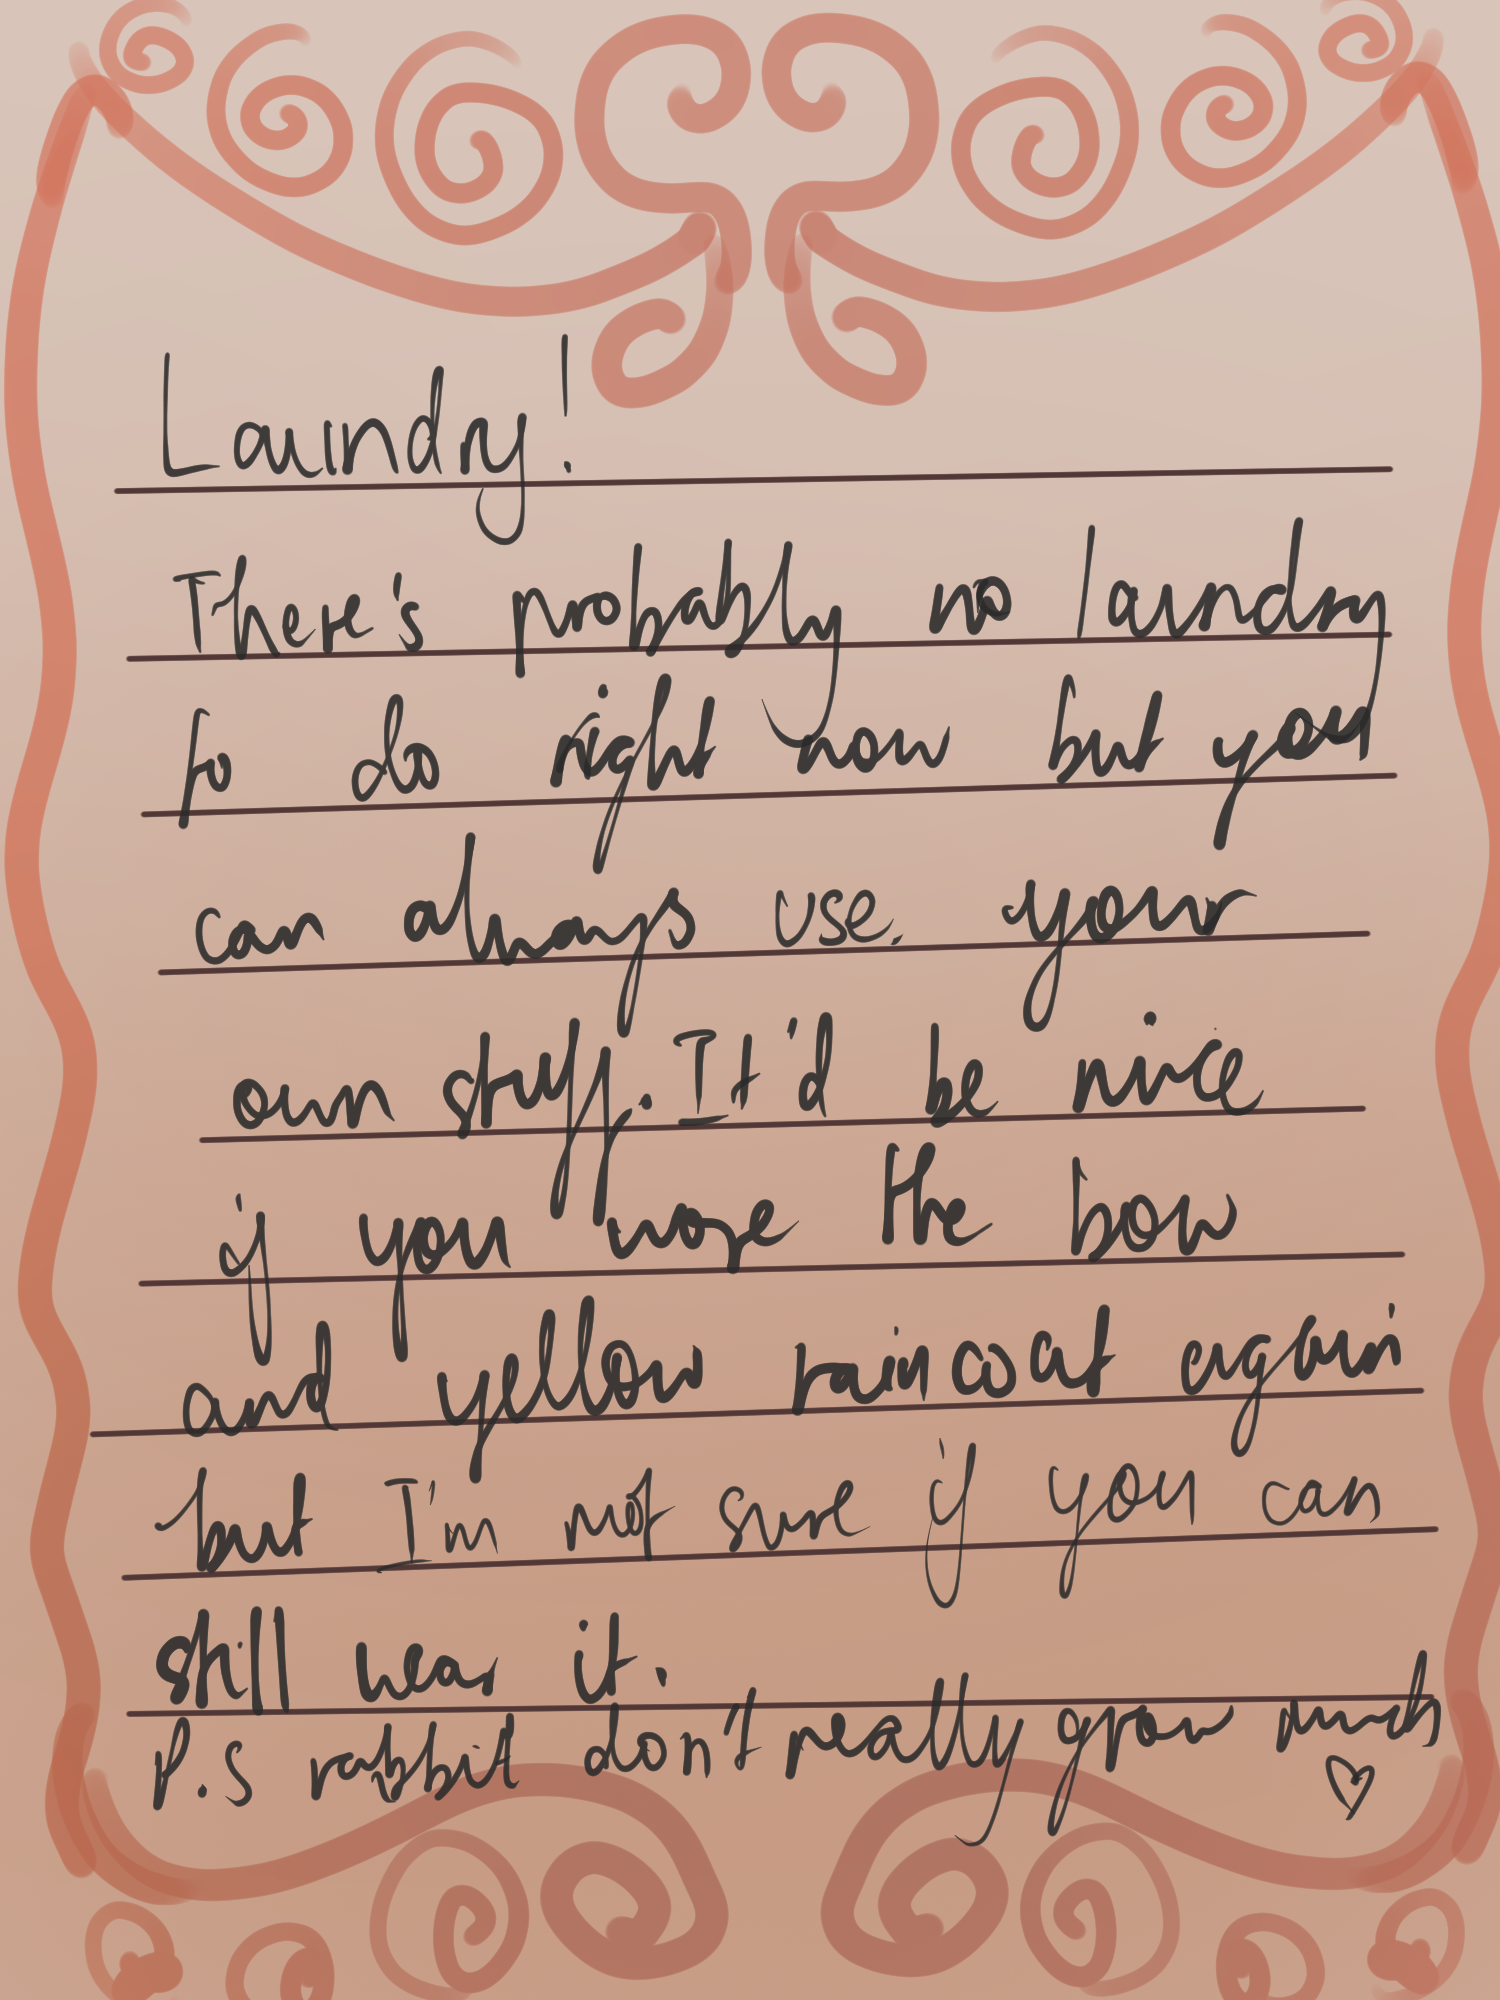 Laundry!
There's probably no laundry
to do right now but you
can always use your
own stuff. It'd be nice
if you wore the bow
and yellow raincoat again
but I'm not sure if you can
still wear it.
P.S rabbit don't really grow much ♡